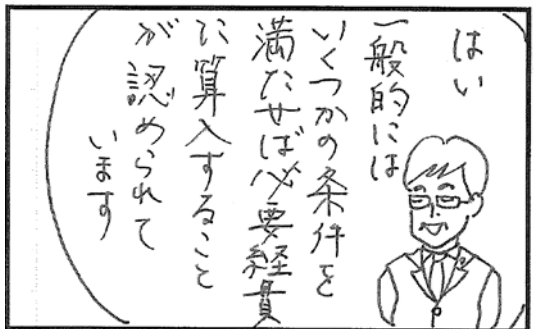 はい
一般的には
いくつかの条件を
満たせば必要経費
に算入すること
が認められて
います